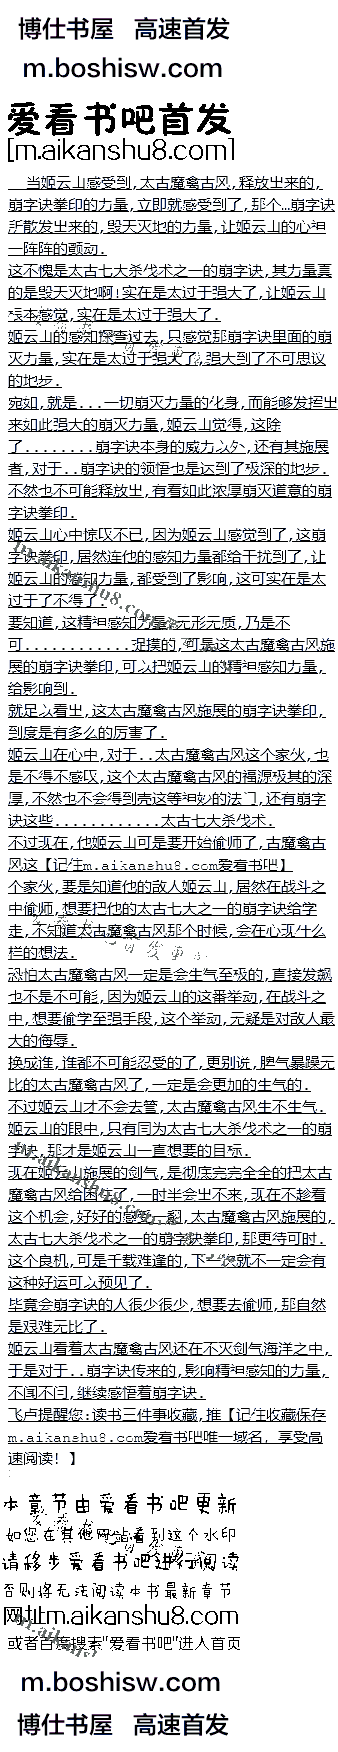 博仕书屋 高速首发
m.boshisw.com
爱看书吧首发
[m.aikanshu8.com]
当姬云山感受到,太古魔禽古风,释放出来的,
崩字诀拳印的力量,立即就感受到了,那个…崩字诀
所散发出来的,毁天灭地的力量,让姬云山的心神
一阵阵的颤动.
这不愧是太古七大杀伐术之一的崩字诀,其力量真
的是毁天灭地啊!实在是太过于强大了,让姬云山
根本感觉,实在是太过于强大了.
姬云山的感知探查过去,只感觉那崩字诀里面的崩
灭力量,实在是太过于强大了,强大到了不可思议
的地步.
宛如,就是...一切崩灭力量的化身,而能够发挥出
来如此强大的崩灭力量,姬云山觉得,这除
了........崩字诀本身的威力以外,还有其施展
者,对于..崩字诀的领悟也是达到了极深的地步.
不然也不可能释放出,有着如此浓厚崩灭道意的崩
字诀拳印.
姬云山心中惊叹不已,因为姬云山感觉到了,这崩
字诀拳印,居然连他的感知力量都给干扰到了,让
姬云山的感知力量,都受到了影响,这可实在是太
过于了不得了.
要知道,这精神感知力量,无形无质,乃是不
可............捉摸的,可是这太古魔禽古风施
展的崩字诀拳印,可以把姬云山的精神感知力量,
给影响到.
就足以看出,这太古魔禽古风施展的崩字诀拳印,
到底是有多么的厉害了.
姬云山在心中,对于..太古魔禽古风这个家伙,也
是不得不感叹,这个太古魔禽古风的福源极其的深
厚,不然也不会得到壳这等神妙的法门,还有崩字
诀这些............太古七大杀伐术.
不过现在,他姬云山可是要开始偷师了,古魔禽古
风这【记住m.aikanshu8.com爱看书吧】
个家伙,要是知道他的敌人姬云山,居然在战斗之
中偷师,想要把他的太古七大之一的崩字诀给学
走,不知道太古魔禽古风那个时候,会在心现什么
样的想法.
恐怕太古魔禽古风一定是会生气至极的,直接发飙
也不是不可能,因为姬云山的这番举动,在战斗之
中,想要偷学至强手段,这个举动,无疑是对敌人最
大的侮辱.
换成谁,谁都不可能忍受的了,更别说,脾气暴躁无
比的太古魔禽古风了,一定是会更加的生气的.
不过姬云山才不会去管,太古魔禽古风生不生气.
姬云山的眼中,只有同为太古七大杀伐术之一的崩
字诀,那才是姬云山一直想要的目标.
现在姬云山施展的剑气,是彻底完完全全的把太古
魔禽古风给困住了,一时半会出不来,现在不趁着
这个机会,好好的感悟一翻,太古魔禽古风施展的,
太古七大杀伐术之一的崩字诀拳印,那更待何时.
这个良机,可是千载难逢的,下一次就不一定会有
这种好运可以预见了.
毕竟会崩字诀的人很少很少,想要去偷师,那自然
是艰难无比了.
姬云山看着太古魔禽古风还在不灭剑气海洋之中,
于是对于..崩字诀传来的,影响精神感知的力量,
不闻不问,继续感悟着崩字诀.
飞卢提醒您:读书三件事收藏,推【记住收藏保存
m.aikanshu8.com爱看书吧唯一域名，享受高
速阅读！】
本章节由爱看书吧更新
如您在其他网站看到这个水印
请移步爱看书吧进行阅读
否则将无法阅读本书最新章节
网址m.aikanshu8.com
或者百度搜索"爱看书吧"进入首页
m.boshisw.com
博仕书屋 高速首发